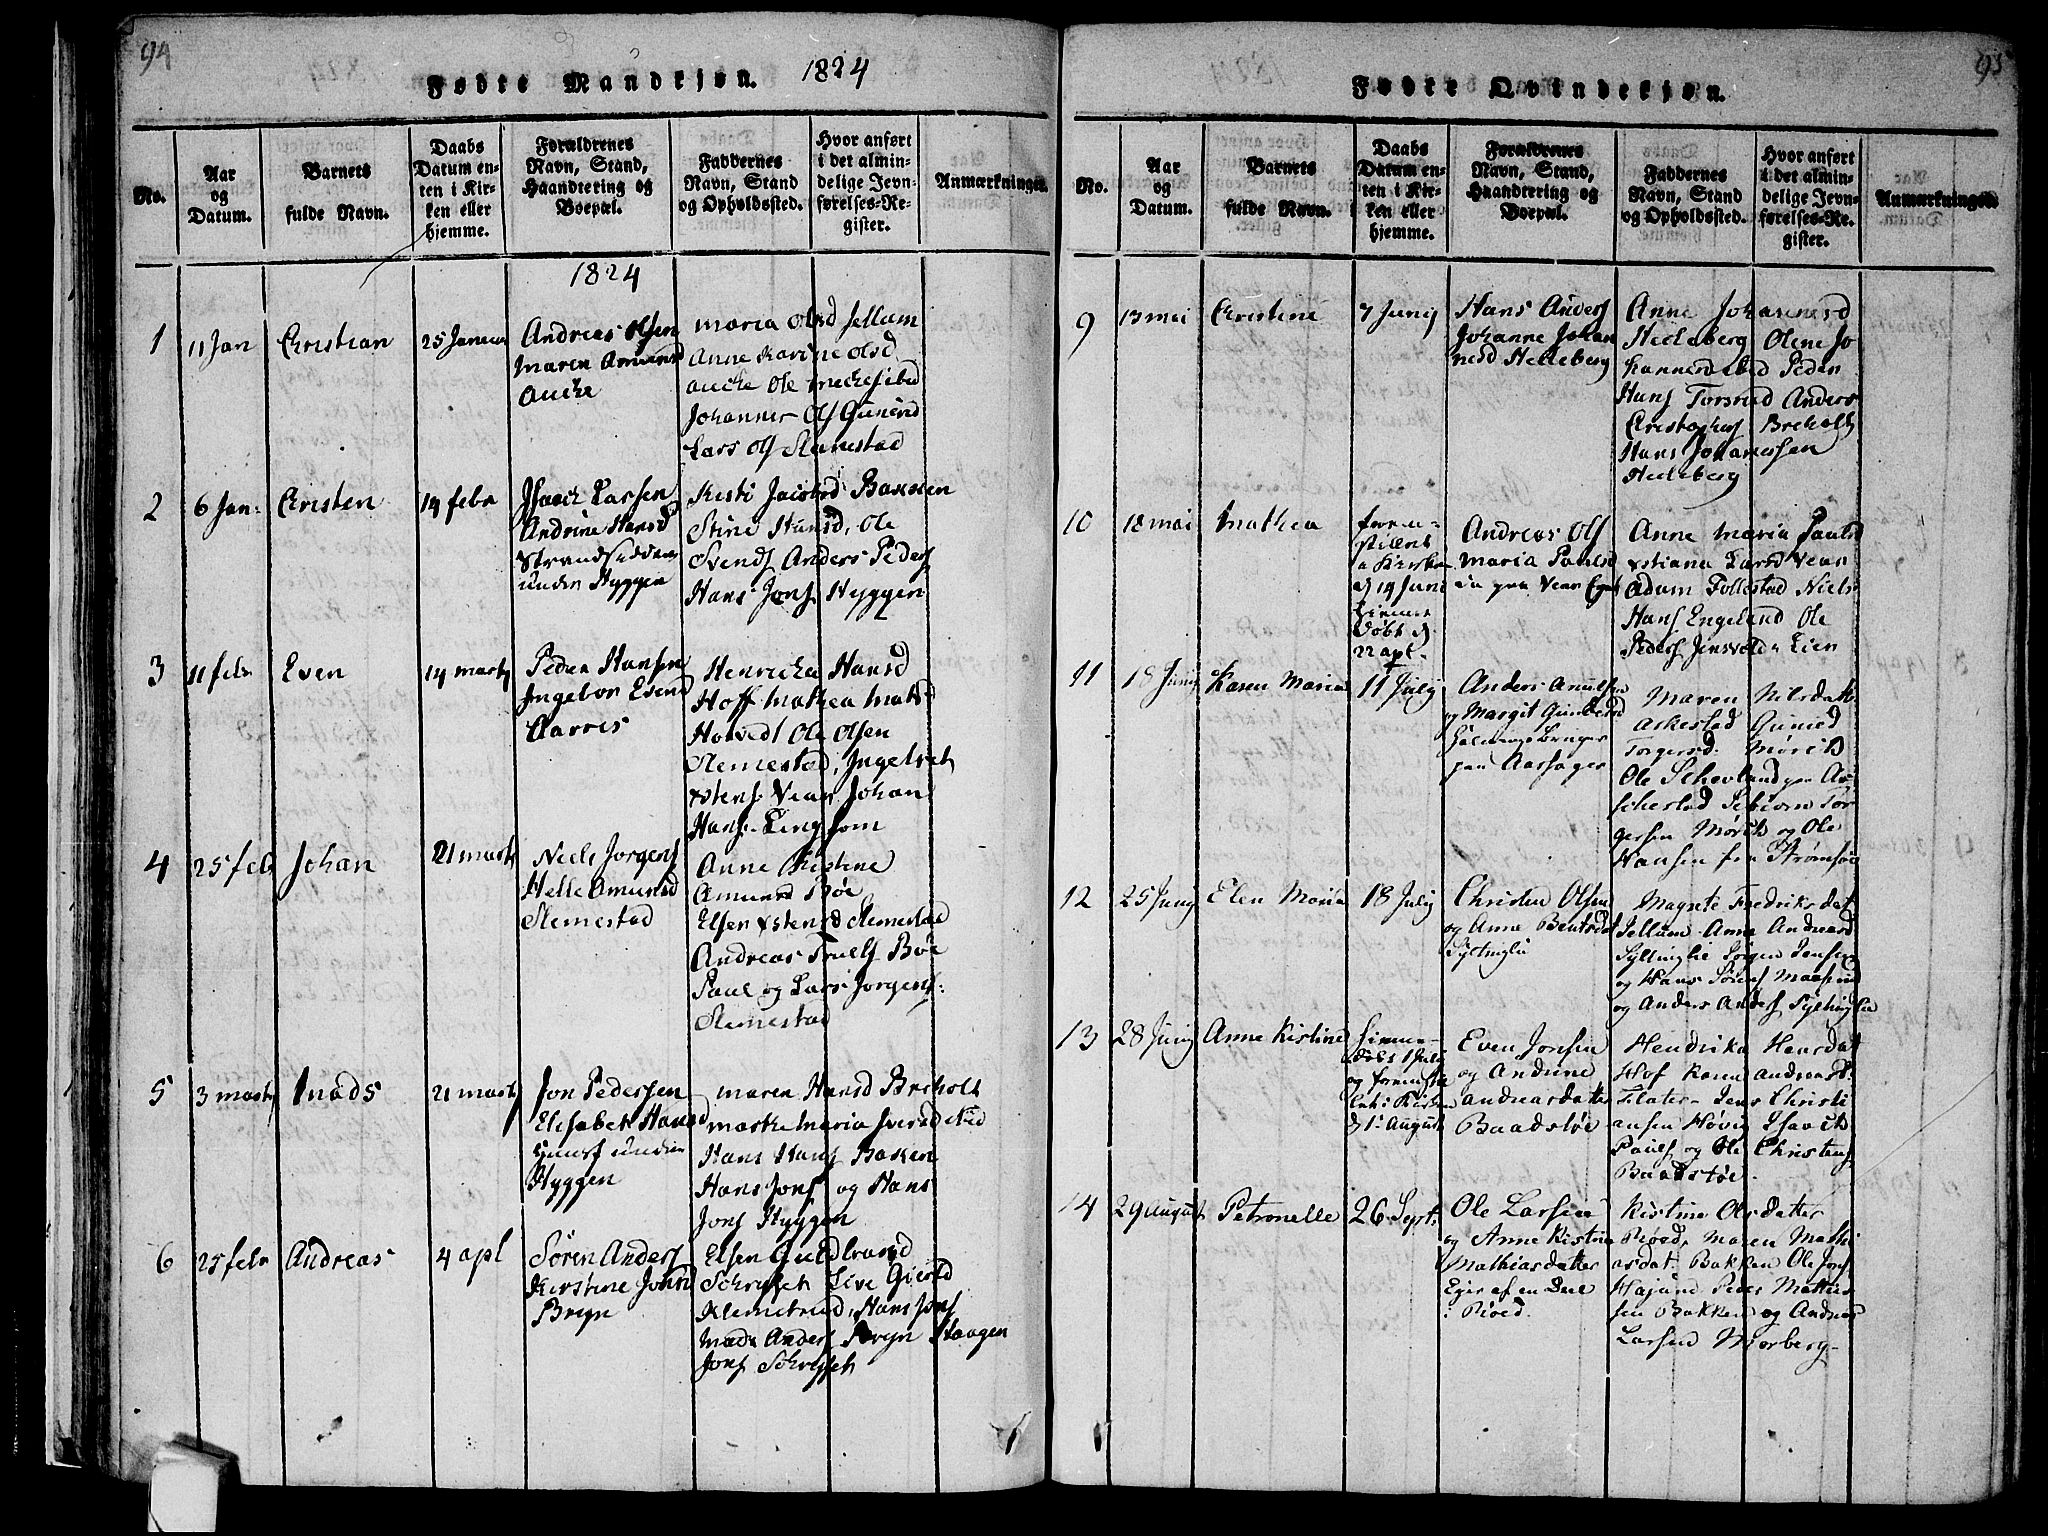 94
Fødte Mandkjøn. 1824
No.
Aar
og
Datum.
Barnets
fulde Navn.
Daabs
Datum en-
ten i Kir-
ken eller
hjemme.
Forældrenes
Navn, Stand,
Haandtering og
Boepæl.
Faddernes
Navn, Stand
og Opholdssted.
Hvor anført
i det almin-
delige Jevn-
førelses-Re-
gister.
Anmærkninger.
1824
1
11 Jan
Christian
25 Januar
Andreas Olsen
Maren
Maria Olsd Sellum
Anne Karine Olsd
Ole
Johannes Ols
Lars Ols Slemestad
2
6 Jan.
Cristen
14 febr
Isack Larsen
Andrine Hansd
Strandsidden
under Hyggen
Kisti
Stine Hansd, Ole
Svends Anders Peders
Hans Jons Hyggen
3
11 febr
Even
14 marty
Peder Hansen
Ingebor Evens
Henricha Hansd
Hoff Mathea Mats
Hovedt Ole Olsen
Slemestad, Ingebret
xstens Vear Johan
Hans
4
25 feb
Johan
21 marty
Niels Jorgens
Helle Amunsd
Slemestad
Anne Kistine
Amunsd Bøe
Elsen xstensd Slemestad
Andreas Truels Bøe
Paul og Lars Jorgens
Slemestad
5
3 marty
Mads
21 marty
Jon Pedersen
Elisabet Hansd
under
Hyggen
Maren Hansd Breholt
Maria
Hans Hans Bakken
Hans Jons og Hans
Jons Hyggen
6
25 febr
Andreas
4 apl
Sören Anders
Kirstine Jonsd
Bryn
Elsen Guldbrand
Live
Klemetrud, Hans Jons
Mads Anders Bryn Haagen
Jons
95
Fødte Qvindekjøn.
No.
Aar
og
Datum.
Barnets
fulde Navn.
Daabs
Datum en-
ten i Kir-
ken eller
hjemme.
Forældrenes
Navn, Stand,
Haandtering og
Boepæl.
Faddernes
Navn, Stand
og Opholdssted.
Hvor anført
i det almin-
delige Jevn-
førelses-Re-
gister.
Anmærkninger.
9
13 mei
Christine
7 Junij
Hans Anders
Johanne Johan
nesd Heckeberg
Anne Johannesd
Heckeberg Olene Jo
hannesd Peder
Hans Torsrud Anders
Cristophers Breholt
Hans Johannessen
Heckeberg
10
18 mai
Mathea
frem-
stillet
i Kirken
d 14 Juni
hiemme
døbt d
22 apl.
Andreas Ols
Maria Paulsd
paa Vear
Anne Maria Paulsd
xstiana Larsd Vear
Adam Follestad Niels
Hans Engelund Ole
Peders Jensvold Lien
11
18 Junij
Karen Maria
11 July
Anders
og Margit Gunbersd
paa Aarsager
Maren Nilsdatte
Askestad Guned
Torgersd. Mörch
Ole Schovland paa As
schestad Tor
gersen Mörch og Ole
Hansen fra Strømsøe
12
25 Junij
Elen Maria
18 July
Christen Olsen
og Anne Bentsdat
Magnte Fredriksdat
Sellum Anne Andersd
Jörgen Jensen
og Hans
og Anders Anders
13
28 Junij
Anne Kistine
hiemme-
døbt 1 July
og fremstil
let i Kirken
d 1. August
Even Jonsen
og Andrine
Andreasdatter
Baadstøe
Hendrika Hansdat
Hof Karen Andreasd.
Flater- Jens Christi
ansen Høvig Isaach
Pauls og Ole Christens
Baadstøe.
14
29 August
Petronelle
26 Sept.
Ole Larsen
og Anne Kistine
Mathiasdatter
Eier af en Deel
i Røed.
Kistine Olsdatter
Røed, Maren Mathi
asdat. Bakken Ole Jons
Peder Mathis
sen Bakken og Andreas
Larsen Morberg-